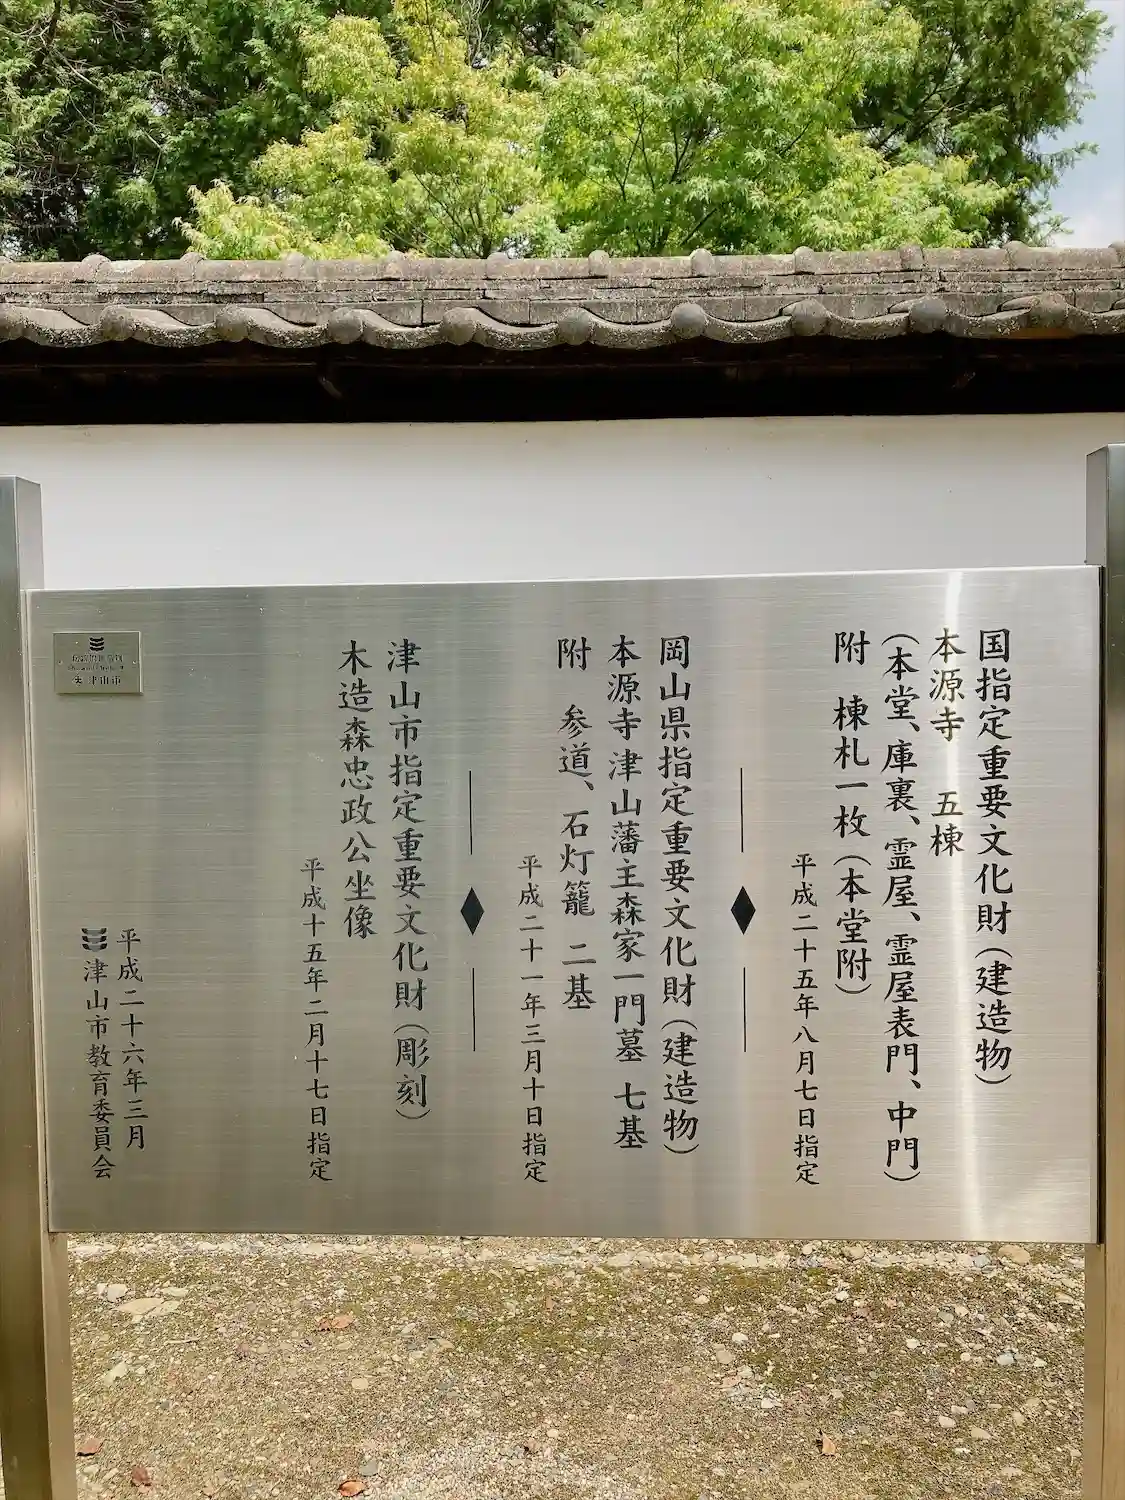 国指定重要文化財（建造物）
本源寺　五棟
（本堂、庫裏、霊屋、霊屋表門、中門）
附　棟札一枚（本堂附）
平成二十五年八月七日指定
岡山県指定重要文化財（建造物）
本源寺津山藩主森家一門墓　七基
附　参道、石灯籠　二基
平成二十一年三月十日指定
津山市指定重要文化財（彫刻）
木造森忠政公坐像
平成十五年二月十七日指定
平成二十六年三月
津山市教育委員会
津山市